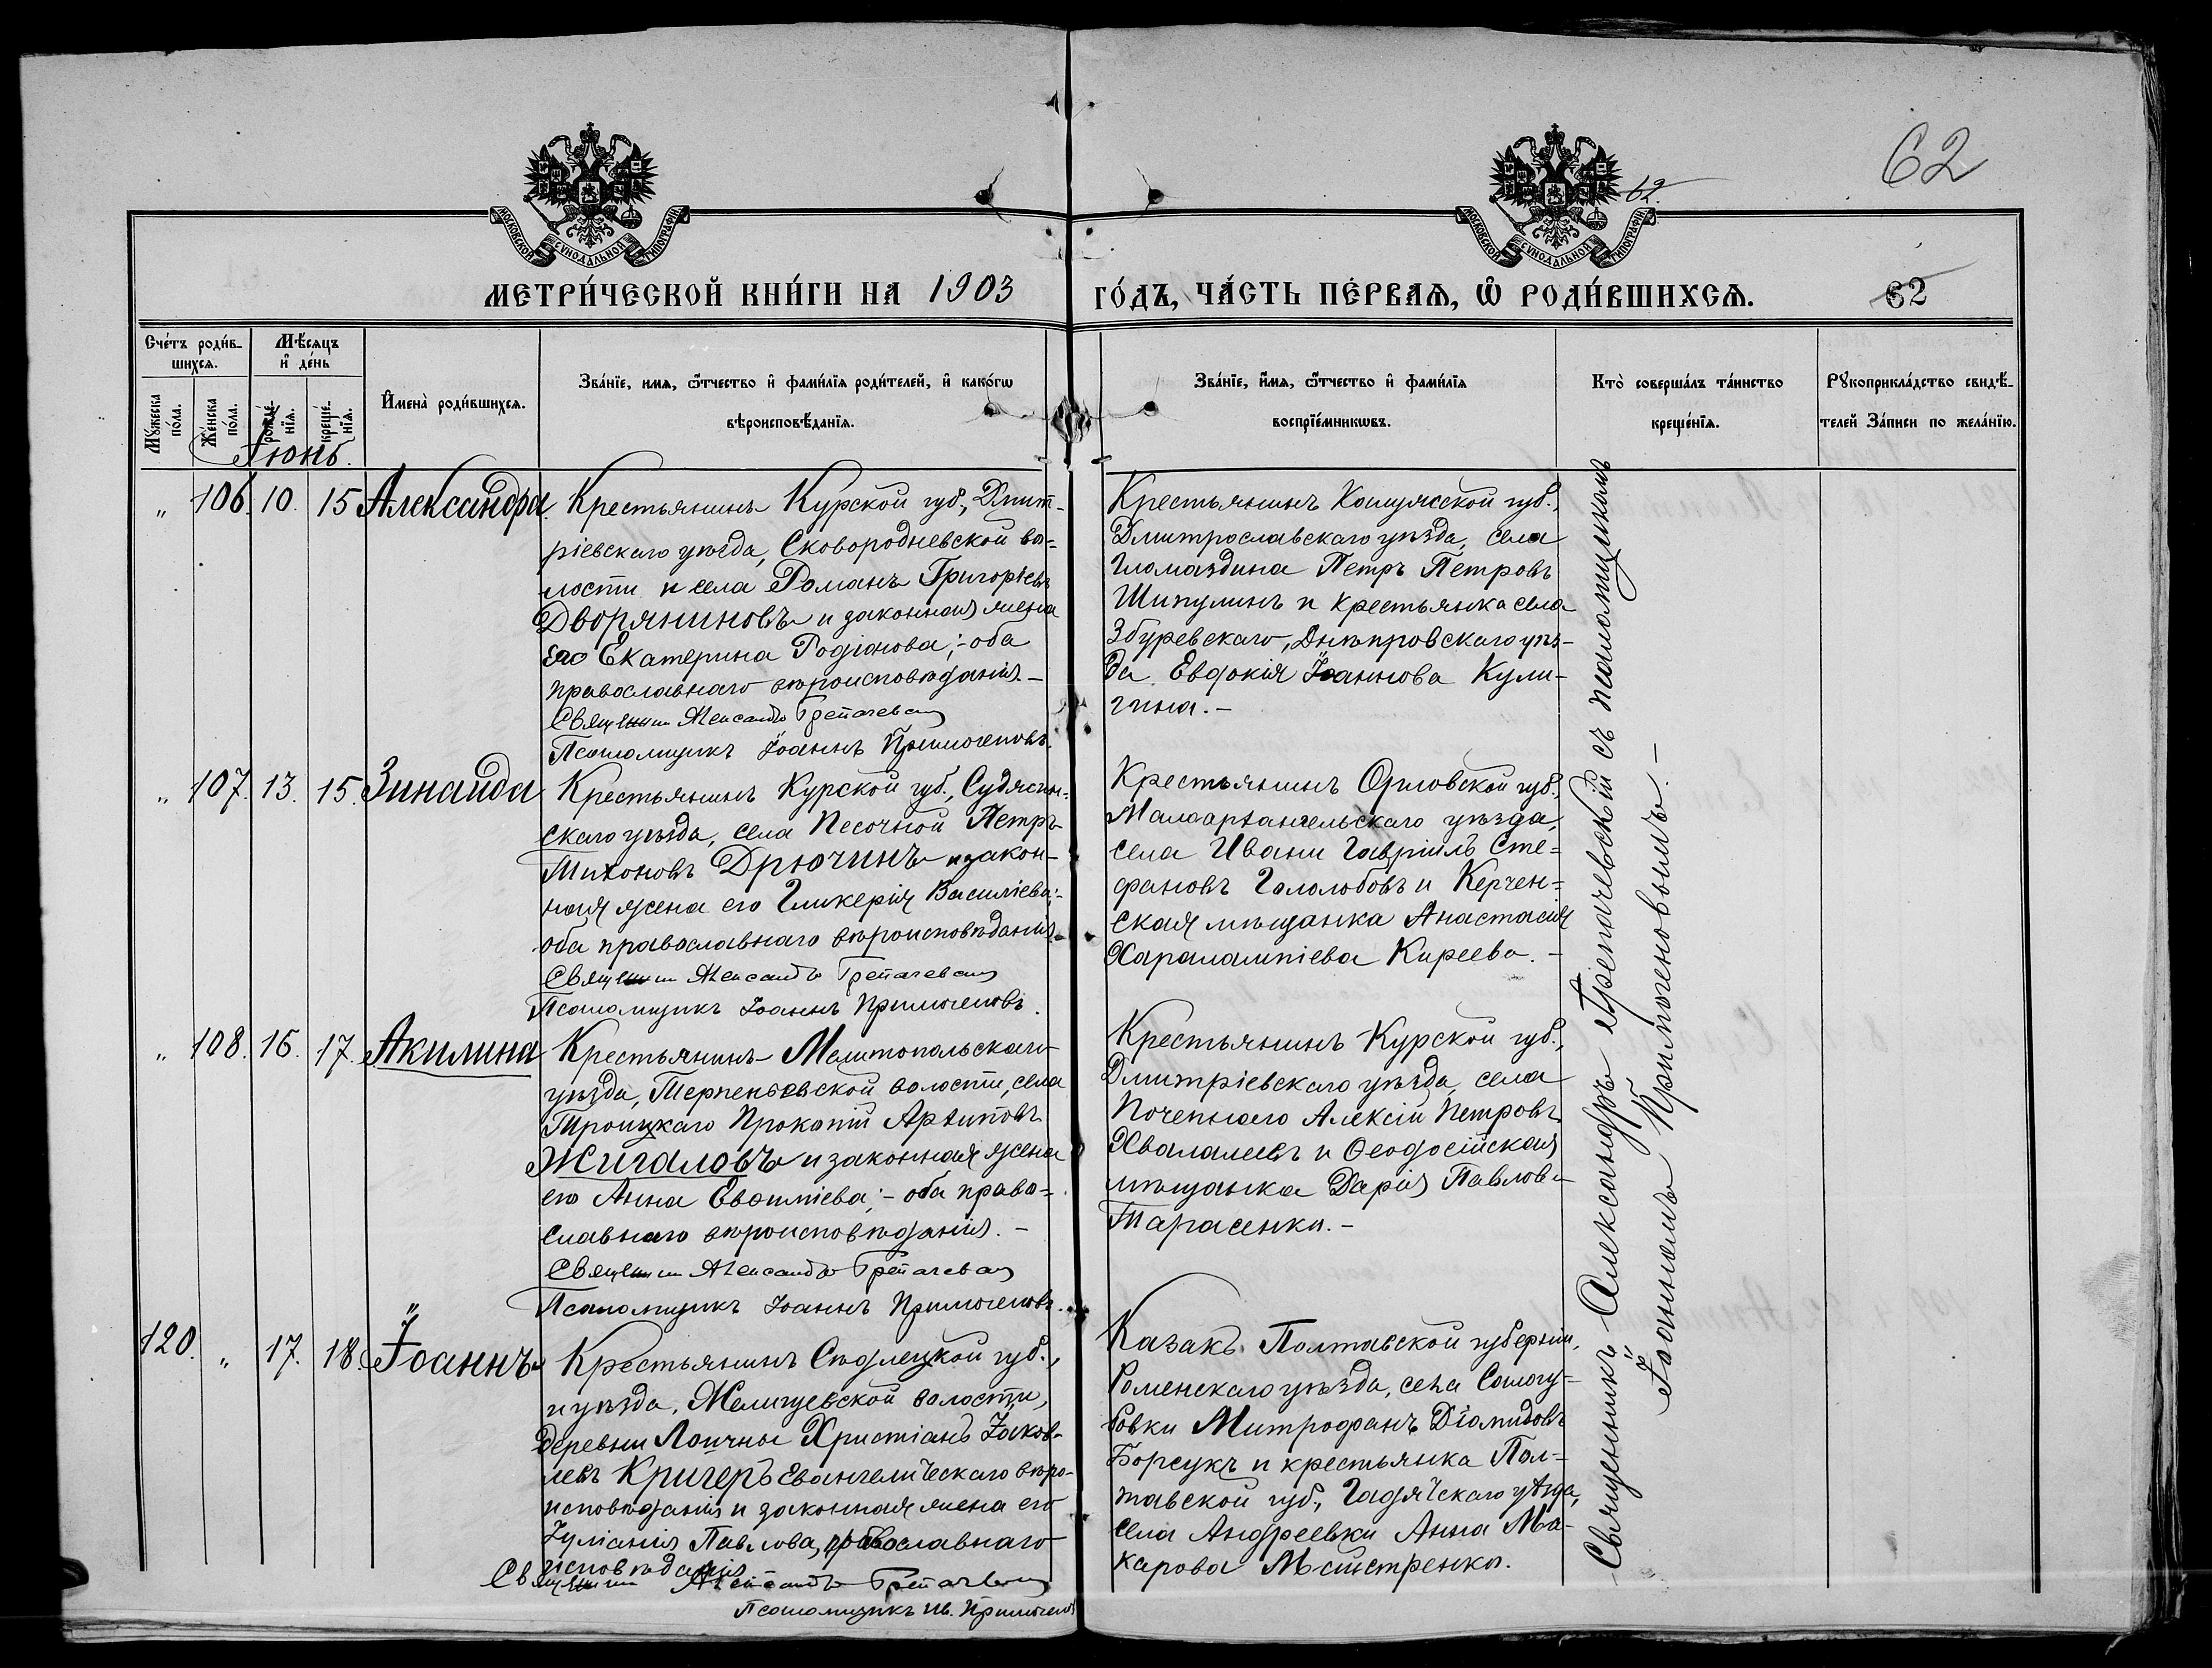 62
62.
МОСКОВСКОЙ СѴНОДАЛЬНОЙ ТИПОГРАФІИ
МОСКОВСКОЙ СѴНОДАЛЬНОЙ ТИПОГРАФІИ
МЕТРИ́ЧЕСКОЙ КНИ́ГИ НА 1903
ГО́ДЪ, ЧА́СТЬ ПЕ́РВАѦ, Ѽ РОДИ́ВШИХСѦ.
62
Сче́тъ роди́в-
шихсѧ.
Мѣ́сѧцъ
и҆ де́нь
Мꙋжеска
по́ла.
Же́нска
по́ла.
рожде́-
нїѧ.
креще́-
нїѧ.
И҆мена̀ роди́вшихсѧ.
Зва́нїе, имѧ, ѿтчество и҆ фами́лїѧ роди́телей, и҆ како́гѡ
вѣроисповѣ́данїѧ.
Зва́нїе, и҆мѧ, ѿтчество и҆ фами́лїѧ
воспрїе́мникѡвъ.
Кто̀ соверша́лъ та́инство
креще́нїѧ.
Рꙋкоприкла́дство свидѣ́-
телей За́писи по жела́нїю.
Іюнь.
„ 106. 10. 15 Александра.
Крестьянинъ Курской губ., Дмит-
ріевскаго уѣзда, Сковородневской во-
лости и села Романъ Григорьевъ
Дворяниновъ и законная жена
его Екатерина Родіонова; - оба
православнаго вѣроисповѣданія. -
Священникъ Александръ Грепачевскій
Псаломщикъ Іоаннъ Примогеновъ.
Крестьянинъ Калужской губ.,
Дмитрославскаго уѣзда, села
Гломаздина Петръ Петровъ
Шипулинъ и крестьянка села
Збурьевскаго, Днѣпровскаго уѣз-
да Евдокія Іоаннова Кули-
гина. -
„ 107. 13. 15. Зинаида
Крестьянинъ Курской губ., Суджан-
скаго уѣзда, села Песочной Петръ
Тихоновъ Дрючинъ и закон-
ная жена его Гликерія Василіева; -
оба православнаго вѣроисповѣданія.
Священникъ Александръ Грепачевскій
Псаломщикъ Іоаннъ Примогеновъ.
Крестьянинъ Орловской губ.,
Малоархангельскаго уѣзда,
села Ивани Гавріилъ Сте-
фановъ Гололобовъ и Керчен-
ская мѣщанка Анастасія
Харалампіева Киреева. -
„ 108. 16. 17. Акилина
Крестьянинъ Мелитопольскаго
уѣзда, Терпеньевской волости, села
Троицкаго Прокопій Архиповъ
Жигаловъ и законная жена
его Анна Евфиміева; - оба право-
славнаго вѣроисповѣданія. -
Священникъ Александръ Грепачевскій
Псаломщикъ Іоаннъ Примогеновъ.
Крестьянинъ Курской губ.,
Дмитріевскаго уѣзда, села
Почепнаго Алексій Петровъ
Хвалаmeевъ и Ѳеодосійская
мѣщанка Дарія Павлова
Тарасенко. -
120. „ 17. 18. Іоаннъ
Крестьянинъ Сѣдлецкой губ.,
и уѣзда, Желищевской волости,
деревни Лоичны Христіанъ Іаков-
левъ Кригеръ Евангелическаго вѣро-
исповѣданія и законная жена его
Іуліанія Павлова, православнаго
исповѣданія
Священникъ Александръ Грепачевскій
Псаломщикъ Ив. Примогеновъ
Казакъ Полтавской губерніи,
Роменскаго уѣзда, села Сологу-
бовки Митрофанъ Діомидовъ
Борсукъ и крестьянка Пол-
тавской губ., Гадячскаго уѣзда,
села Андреевки Анна Ма-
карова Майстренко.
Священникъ Александръ Грепачевскій съ псаломщикомъ
Іоанномъ Примогеновымъ. -